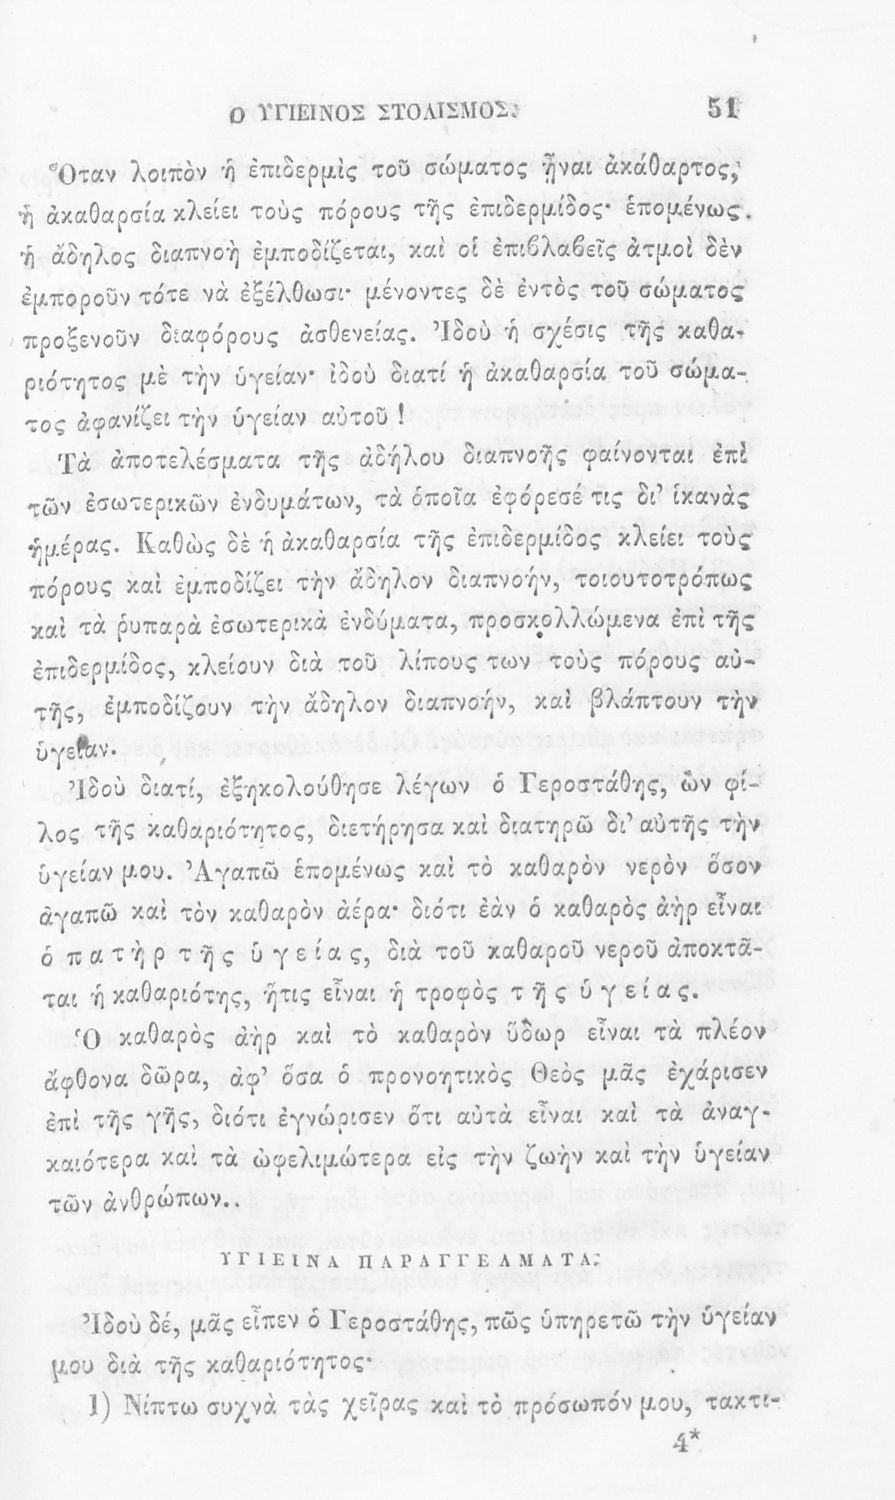 Ο ΥΓΙΕΙΝΟΣ ΣΤΟΛΙΣΜΟΣ. 51
Ὅταν λοιπὸν ἡ ἐπιδερμὶς τοῦ σώματος ᾖναι ἀκάθαρτος,
ἡ ἀκαθαρσία κλείει τοὺς πόρους τῆς ἐπιδερμίδος· ἑπομένως
ἡ ἄδηλος διαπνοὴ ἐμποδίζεται, καὶ οἱ ἐπιβλαβεῖς ἀτμοὶ δὲν
ἐμποροῦν τότε νὰ ἐξέλθωσι· μένοντες δὲ ἐντὸς τοῦ σώματος
προξενοῦν διαφόρους ἀσθενείας. Ἰδοὺ ἡ σχέσις τῆς καθα-
ριότητος μὲ τὴν ὑγείαν· ἰδοὺ διατί ἡ ἀκαθαρσία τοῦ σώμα-
τος ἀφανίζει τὴν ὑγείαν αὐτοῦ!
Τὰ ἀποτελέσματα τῆς ἀδήλου διαπνοῆς φαίνονται ἐπὶ
τῶν ἐσωτερικῶν ἐνδυμάτων, τὰ ὁποῖα ἐφόρεσέ τις δι’ ἱκανὰς
ἡμέρας. Καθὼς δὲ ἡ ἀκαθαρσία τῆς ἐπιδερμίδος κλείει τοὺς
πόρους καὶ ἐμποδίζει τὴν ἄδηλον διαπνοήν, τοιουτοτρόπως
καὶ τὰ ῥυπαρὰ ἐσωτερικὰ ἐνδύματα, προσκολλώμενα ἐπὶ τῆς
ἐπιδερμίδος, κλείουν διὰ τοῦ λίπους των τοὺς πόρους αὐ-
τῆς, ἐμποδίζουν τὴν ἄδηλον διαπνοήν, καὶ βλάπτουν τὴν
ὑγείαν.
Ἰδοὺ διατί, ἐξηκολούθησε λέγων ὁ Γεροστάθης, ὢν φί-
λος τῆς καθαριότητος, διετήρησα καὶ διατηρῶ δι’ αὐτῆς τὴν
ὑγείαν μου. Ἀγαπῶ ἑπομένως καὶ τὸ καθαρὸν νερὸν ὅσον
ἀγαπῶ καὶ τὸν καθαρὸν ἀέρα· διότι ἐὰν ὁ καθαρὸς ἀὴρ εἶναι
ὁ πατὴρ τῆς ὑγείας, διὰ τοῦ καθαροῦ νεροῦ ἀποκτᾶ-
ται ἡ καθαριότης, ἥτις εἶναι ἡ τροφὸς τῆς ὑγείας.
Ὁ καθαρὸς ἀὴρ καὶ τὸ καθαρὸν ὕδωρ εἶναι τὰ πλέον
ἄφθονα δῶρα, ἀφ’ ὅσα ὁ προνοητικὸς Θεὸς μᾶς ἐχάρισεν
ἐπὶ τῆς γῆς, διότι ἐγνώρισεν ὅτι αὐτὰ εἶναι καὶ τὰ ἀναγ-
καιότερα καὶ τὰ ὠφελιμώτερα εἰς τὴν ζωὴν καὶ τὴν ὑγείαν
τῶν ἀνθρώπων..
ΥΓΙΕΙΝΑ ΠΑΡΑΓΓΕΛΜΑΤΑ.
Ἰδοὺ δέ, μᾶς εἶπεν ὁ Γεροστάθης, πῶς ὑπηρετῶ τὴν ὑγείαν
μου διὰ τῆς καθαριότητος·
1) Νίπτω συχνὰ τὰς χεῖρας καὶ τὸ πρόσωπόν μου, τακτι-
4*